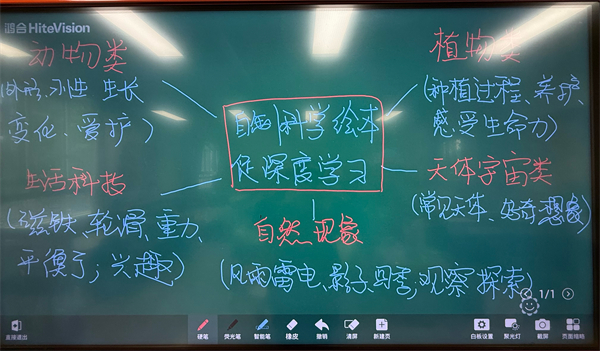 鸿合HiteVision
动物类
(外形、习性 生长
变化、爱护)
植物类
(种植过程、养护、
感受生命力)
自然科学绘本
促深度学习
生活科技
(磁铁、轮滑、重力、
平衡了;兴趣)
天体宇宙类
(常见天体、好奇想象)
自然现象
(风雨雷电、影子、四季;观察探索)
1/1
直接退出
硬笔
荧光笔
智能笔
橡皮
撤销
清屏
新建页
白板设置
聚光灯
截屏
页面缩略